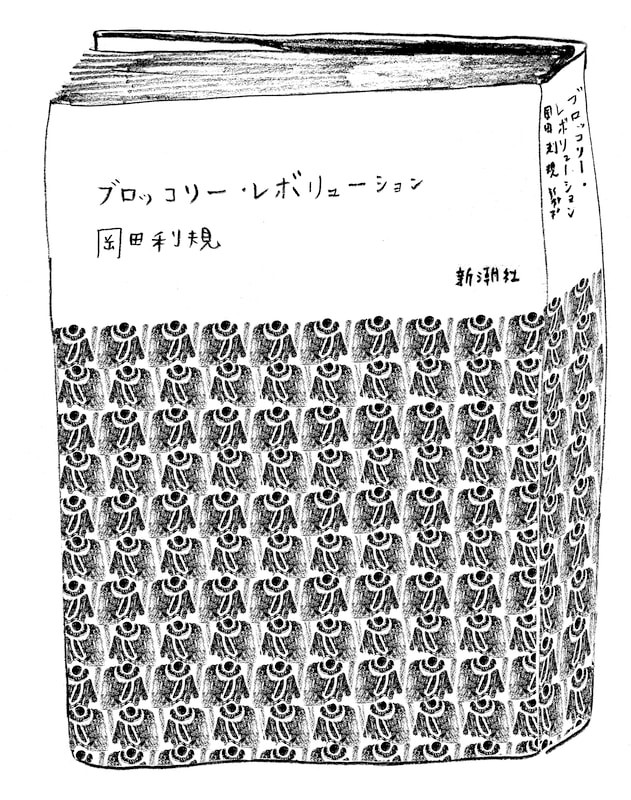 ブロッコリー・レボリューション
岡田利規
新潮社
ブロッコリー・
レボリューション
岡田利規